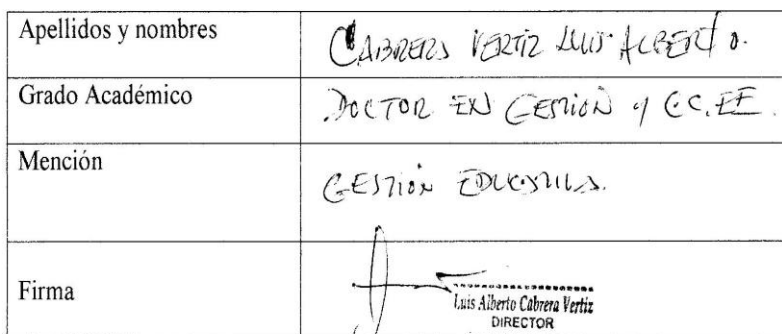 Apellidos y nombres
CABRERA VERTIZ LUIS ALBERTO.
Grado Académico
DOCTOR EN GESTIÓN y CC.EE.
Mención
GESTIÓN EDUCATIVA.
Firma
Luis Alberto Cabrera Vertiz
DIRECTOR